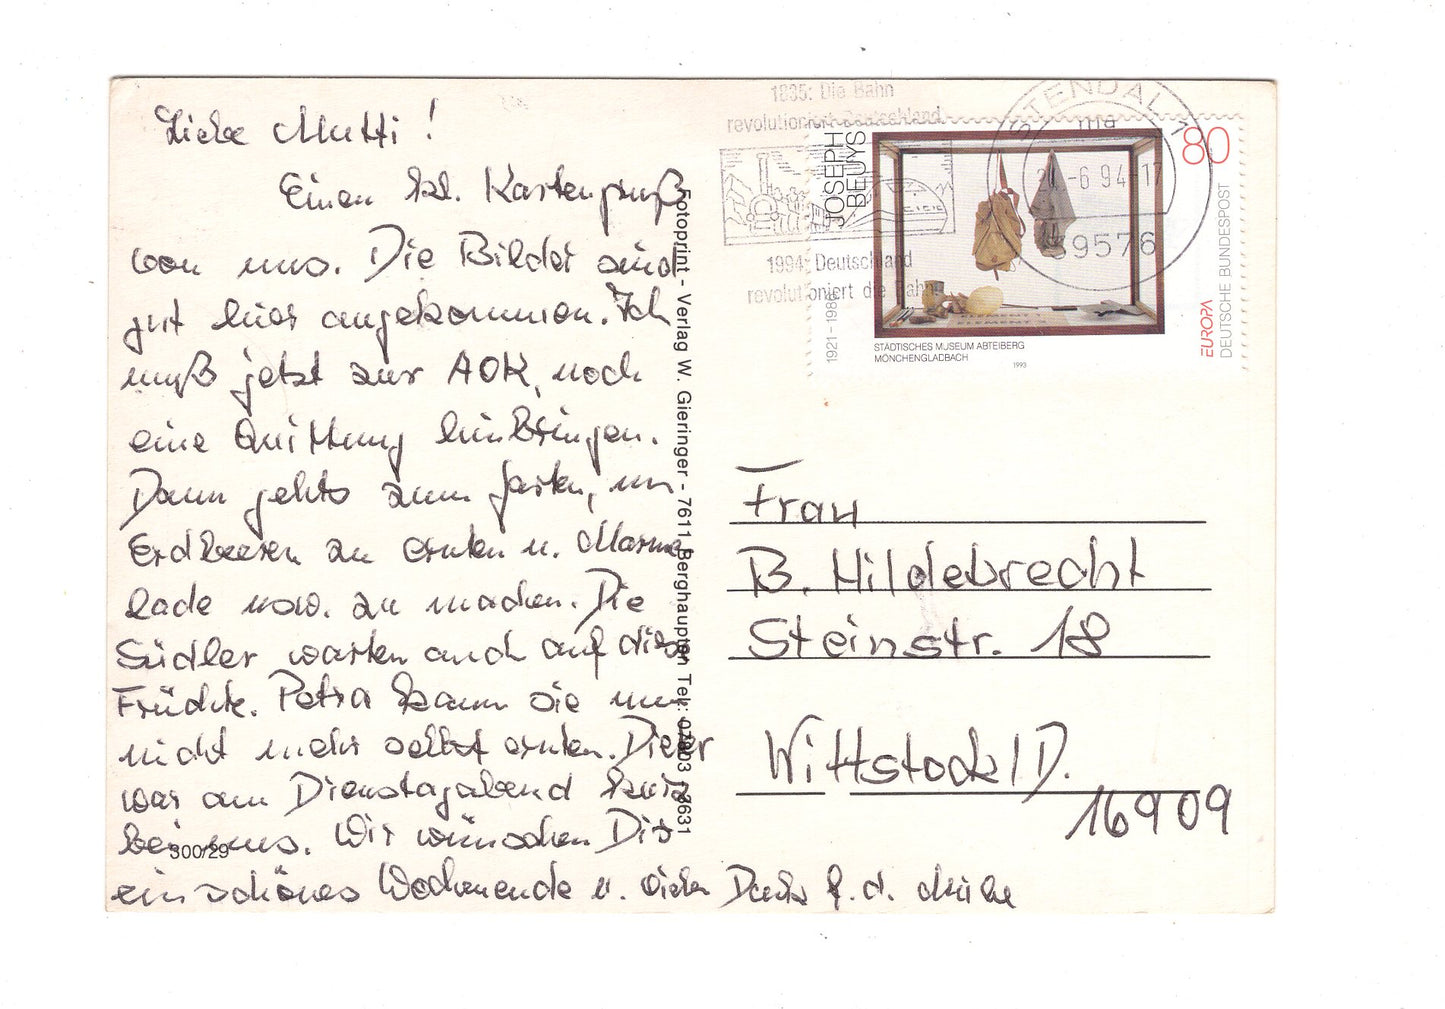 Liebe Mutti!
Einen kl. Kartengruß
von uns. Die Bilder sind
gut hier angekommen. Ich
muß jetzt zur AOK, noch
eine Quittung hinbringen.
Dann gehts zum Garten, um
Erdbeeren zu ernten u. Marme
lade usw. zu machen. Die
Südler warten auch auf die
Früchte. Petra kann sie nun
nicht mehr selbst ernten. Dieter
war am Dienstagabend kurz
bei uns. Wir wünschen Dir
ein schönes Wochenende u. vielen Dank f. d. Mühe
300/29
Fotoprint - Verlag W. Gieringer - 7611 Berghaupten Tel. 07803 / 3631
1835: Die Bahn
revolutioniert Deutschland
1994: Deutschland
revolutioniert die Bahn
STENDAL 1
ma
-6 94-17
39576
JOSEPH
BEUYS
1921-1986
80
STÄDTISCHES MUSEUM ABTEIBERG
MÖNCHENGLADBACH
1993
EUROPA
DEUTSCHE BUNDESPOST
Frau
B. Hildebrecht
Steinstr. 18
Wittstock/D.
16909